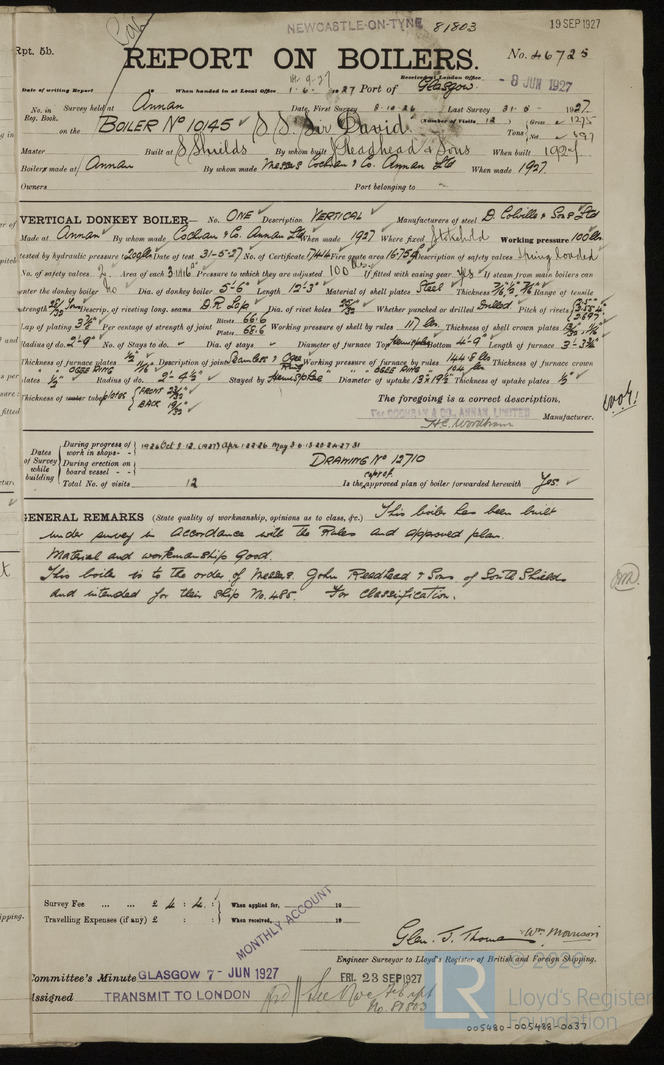 NEWCASTLE-ON-TYNE 81803 19 SEP 1927
Rpt. 5b.
REPORT ON BOILERS. No. 46725
Received at London Office - 8 JUN 1927
Date of writing Report 19 When handed in at Local Office 1-6-1927 Port of Glasgow.
No. in Survey held at Annan Date, First Survey 8-10-26 Last Survey 31-5-1927
Reg. Book. (Number of Visits 12)
on the BOILER No 10145 S.S. Sir David Tons Gross 1275 Net 697
Master Built at S. Shields By whom built J. Readhead & Sons When built 1927
Boilers made at Annan By whom made Messrs Cochran & Co. Annan Ltd When made 1927.
Owners Port belonging to
VERTICAL DONKEY BOILER— No. ONE Description VERTICAL Manufacturers of steel D. Colville & Sons Ltd
Made at Annan By whom made Cochran & Co. Annan Ltd When made 1927 Where fixed Stokehold Working pressure 100 lbs
tested by hydraulic pressure to 200 lbs Date of test 31-5-27 No. of Certificate 17414 Fire grate area Description of safety valves Spring loaded
No. of safety valves 2 Area of each Pressure to which they are adjusted 100 lbs If fitted with easing gear Yes If steam from main boilers can
enter the donkey boiler No Dia. of donkey boiler 5'-6" Length 12'-3" Material of shell plates Steel Thickness Range of tensile
strength Descrip. of riveting long. seams D.R. Lap Dia. of rivet holes Whether punched or drilled Drilled Pitch of rivets
Lap of plating Per centage of strength of joint Rivets 66.6 Plates 68.6 Working pressure of shell by rules 117 lbs. Thickness of shell crown plates
Radius of do. 2'-9" No. of Stays to do. Dia. of stays Diameter of furnace Top Hemisphere Bottom 4'-9" Length of furnace 3'-3¾"
Thickness of furnace plates ½" Description of joint Seamless & Ogee Ring Working pressure of furnace by rules 144.8 lbs Thickness of furnace crown
" OGEE RING " OGEE RING 104 lbs
plates ½" Radius of do. 2'-4½" Stayed by Hemisphere Diameter of uptake 13 x 19½ Thickness of uptake plates ½"
Thickness of water tubes FRONT BACK
The foregoing is a correct description.
For COCHRAN & CO., ANNAN, LIMITED
Manufacturer.
Dates of Survey while building
During progress of work in shops - - 1926 Oct 8.12. (1927) Apr 1.22.26 May 3.6.13.20.24.27.31
During erection on board vessel - - DRAWING No 12710
Total No. of visits 12 Is the approved plan of boiler forwarded herewith Yes.
GENERAL REMARKS (State quality of workmanship, opinions as to class, &c.) This boiler has been built
under survey in accordance with the Rules and approved plan.
Material and workmanship good.
This boiler is to the order of Messrs. John Readhead & Sons of South Shields
and intended for their ship No. 485. For classification.
Survey Fee ... ... £ 4 : 4 : When applied for, 19
Travelling Expenses (if any) £ : : When received, 19
MONTHLY ACCOUNT
Glen. J. Thomas & Wm Morrison
Engineer Surveyor to Lloyd's Register of British and Foreign Shipping.
Committee's Minute GLASGOW 7 - JUN 1927 FRI. 23 SEP 1927
Assigned TRANSMIT TO LONDON See Nwc F.E. rpt
No. 81803
© 2020
LR Lloyd's Register
Foundation
005480-005488-0037